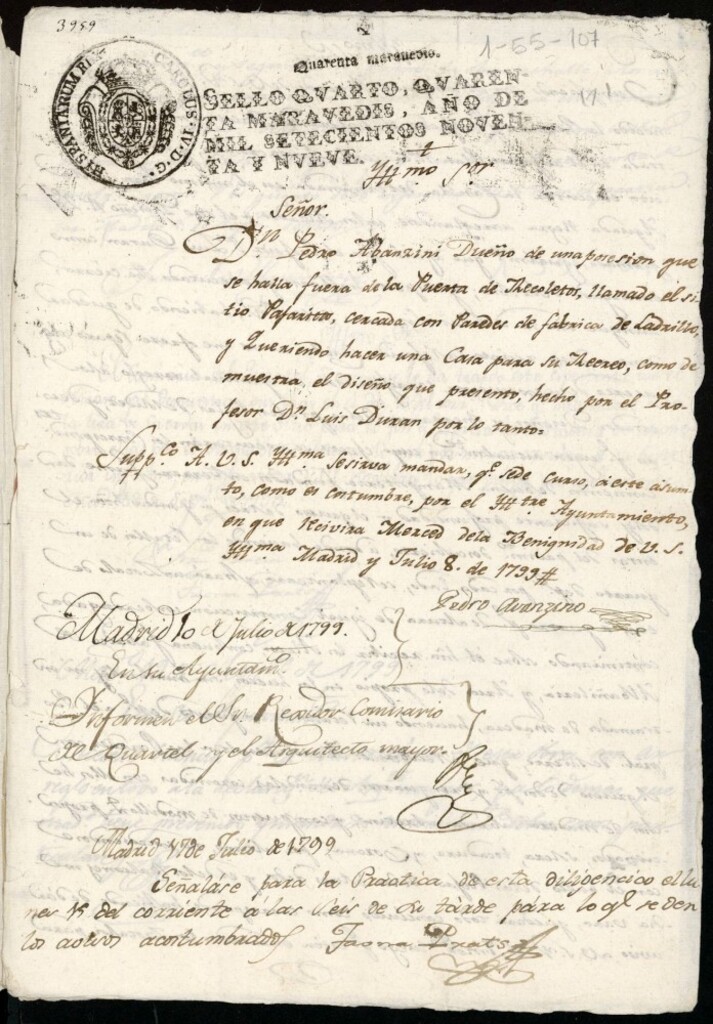 3959
1-55-107
Quarenta marauedis.
HISPANIARUM R
CAROLUS·IV·D·G·
SELLO QVARTO, QVAREN-
TA MARAVEDIS, AÑO DE
MIL SETECIENTOS NOVEN-
TA Y NVEVE.
Yllmo Sor
Señor.
Dn Pedro Abanzini Dueño de una posesion que
se halla fuera de la Puerta de Recoletos, llamado el si
tio Pajarito, cercada con Paredes de fabrica de Ladrillo,
y Queriendo hacer una Casa para su Recreo, como de
muestra el diseño que presento, hecho por el Pro-
fesor Dn Luis Duran por lo tanto=
Suppco A. V. S. Yllma se sirva mandar, qe. se de curso, a este asun
to, como es costumbre, por el Yltre Ayuntamiento,
en que Recivira Merced dela Benignidad de V. S.
Yllma Madrid y Julio 8. de 1799
Pedro Avanzino
Madrid 10 de Julio de 1799.
En su Ayuntamto.
Informen el Sr. Rexidor Comisario
de Quartel y el Arquitecto mayor
Madrid 17 de Julio de 1799
Señalase para la Practica de esta diligencia el lu
nes 15 del corriente á las seis de su tarde para lo ql se den
los avisos acostumbrados Prats